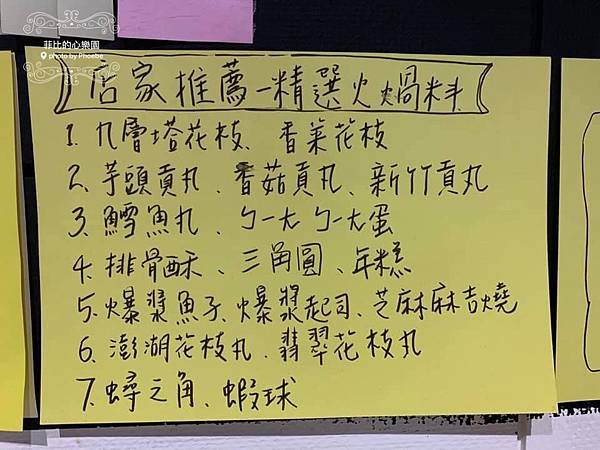 菲比的心樂園
photo by Phoebe
店家推薦-精選火鍋料
1. 九層塔花枝、香菜花枝
2. 芋頭貢丸、香菇貢丸、新竹貢丸
3. 鱈魚丸、ㄅㄧㄤㄅㄧㄤ蛋
4. 排骨酥、三角圓、年糕
5. 爆漿魚子、爆漿起司、芝麻麻吉燒
6. 澎湖花枝丸、翡翠花枝丸
7. 蟳之角、蝦球